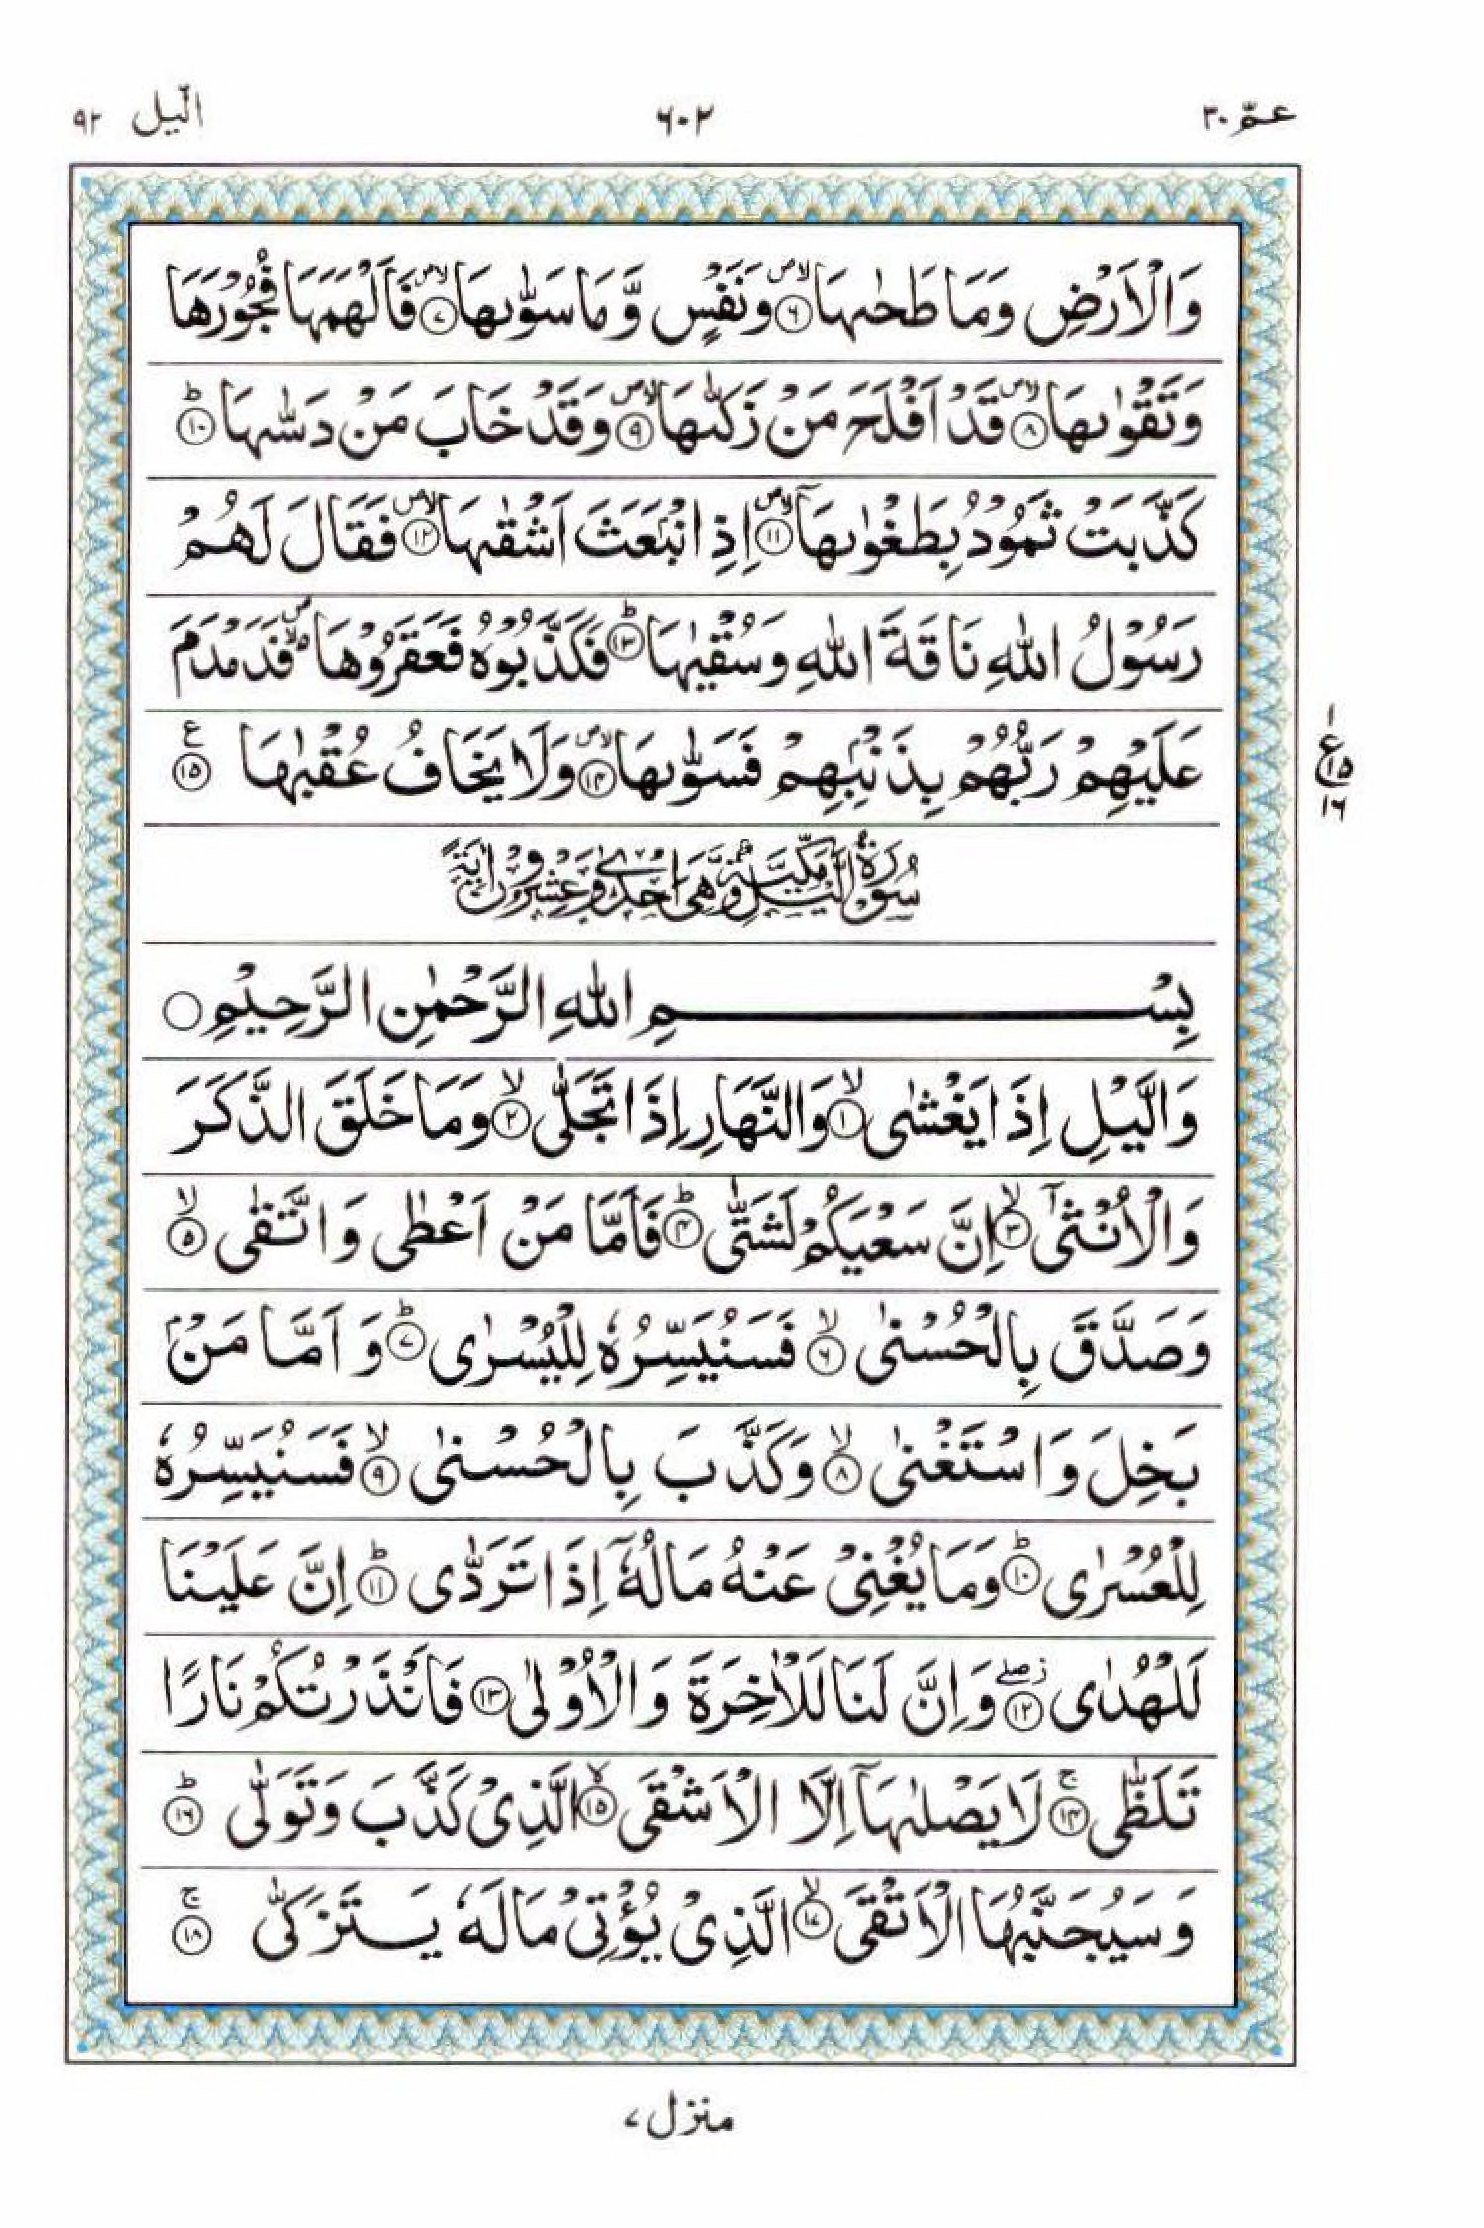 عمّ ٣٠ ٦٠٢ الّيل ٩٢
وَالْاَرْضِ وَمَا طَحٰىهَا ۪ۙ ﴿٦﴾ وَنَفْسٍ وَّمَا سَوّٰىهَا ۪ۙ ﴿٧﴾ فَاَلْهَمَهَا فُجُوْرَهَا
وَتَقْوٰىهَا ۪ۙ ﴿٨﴾ قَدْ اَفْلَحَ مَنْ زَكّٰىهَا ۪ۙ ﴿٩﴾ وَقَدْ خَابَ مَنْ دَسّٰىهَا ؕ ﴿١٠﴾
كَذَّبَتْ ثَمُوْدُ بِطَغْوٰىهَاۤ ۪ۙ ﴿١١﴾ اِذِ انْۢبَعَثَ اَشْقٰىهَا ۪ۙ ﴿١٢﴾ فَقَالَ لَهُمْ
رَسُوْلُ اللّٰهِ نَاقَةَ اللّٰهِ وَسُقْيٰهَا ؕ ﴿١٣﴾ فَكَذَّبُوْهُ فَعَقَرُوْهَا ۪ۙ فَدَمْدَمَ
عَلَيْهِمْ رَبُّهُمْ بِذَنْۢبِهِمْ فَسَوّٰىهَا ۪ۙ ﴿١٤﴾ وَلَا يَخَافُ عُقْبٰهَا ﴿١٥﴾ ع
١ ع ١٥ ١٦
سُوْرَةُ الَّيْلِ مَكِّيَّةٌ وَّهِىَ اِحْدٰى وَعِشْرُوْنَ اٰيَةً
بِسْمِ اللّٰهِ الرَّحْمٰنِ الرَّحِيْمِ ○
وَالَّيْلِ اِذَا يَغْشٰى ۙ ﴿١﴾ وَالنَّهَارِ اِذَا تَجَلّٰى ۙ ﴿٢﴾ وَمَا خَلَقَ الذَّكَرَ
وَالْاُنْثٰىۤ ۙ ﴿٣﴾ اِنَّ سَعْيَكُمْ لَشَتّٰى ؕ ﴿٤﴾ فَاَمَّا مَنْ اَعْطٰى وَاتَّقٰى ۙ ﴿٥﴾
وَصَدَّقَ بِالْحُسْنٰى ۙ ﴿٦﴾ فَسَنُيَسِّرُهٗ لِلْيُسْرٰى ؕ ﴿٧﴾ وَاَمَّا مَنْۢ
بَخِلَ وَاسْتَغْنٰى ۙ ﴿٨﴾ وَكَذَّبَ بِالْحُسْنٰى ۙ ﴿٩﴾ فَسَنُيَسِّرُهٗ
لِلْعُسْرٰى ؕ ﴿١٠﴾ وَمَا يُغْنِىْ عَنْهُ مَالُهٗۤ اِذَا تَرَدّٰى ؕ ﴿١١﴾ اِنَّ عَلَيْنَا
لَلْهُدٰى ۖز ﴿١٢﴾ وَاِنَّ لَنَا لَلْاٰخِرَةَ وَالْاُوْلٰى ﴿١٣﴾ فَاَنْذَرْتُكُمْ نَارًا
تَلَظّٰى ۚ ﴿١٤﴾ لَا يَصْلٰىهَاۤ اِلَّا الْاَشْقَى ۙ ﴿١٥﴾ الَّذِىْ كَذَّبَ وَتَوَلّٰى ؕ ﴿١٦﴾
وَسَيُجَنَّبُهَا الْاَتْقَى ۙ ﴿١٧﴾ الَّذِىْ يُؤْتِىْ مَالَهٗ يَتَزَكّٰى ۚ ﴿١٨﴾
منزل ٧